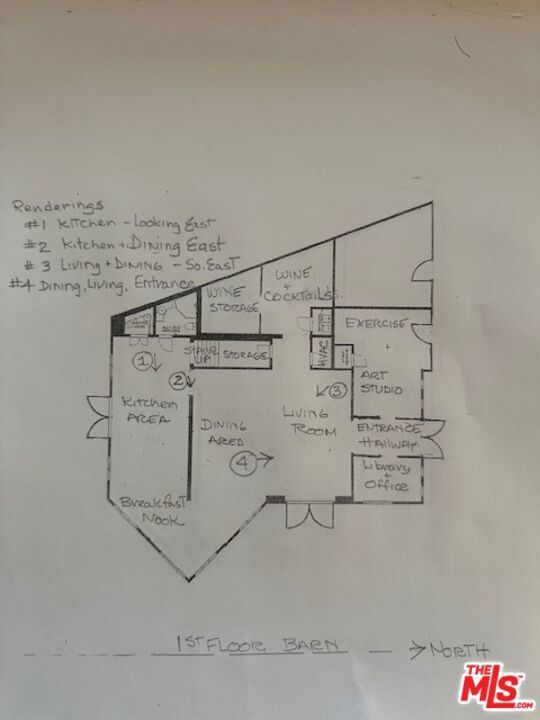 Renderings
#1 KITCHEN - Looking East
#2 Kitchen + Dining East
#3 Living + DINING - So. East
#4 Dining, Living, Entrance
WINE
STORAGE
WINE
+
COCKTAILS
EXERCISE
+
ART
STUDIO
STAIR
UP
STORAGE
HVAC
1
2
3
4
Kitchen
AREA
DINING
AREA
LIVING
ROOM
ENTRANCE
HALLWAY
Library
+
Office
Breakfast
Nook
1ST FLOOR BARN
→ NORTH
THE
MLS
.COM